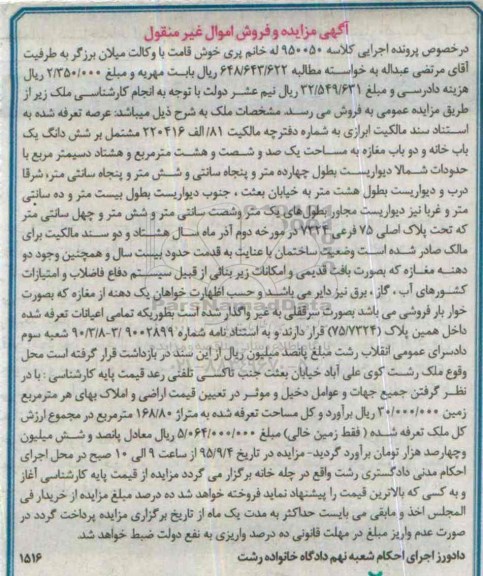 آگهی مزایده و فروش اموال غیر منقول
درخصوص پرونده اجرایی کلاسه ۹۵۰۰۵۰ له خانم پری خوش قامت با وکالت میلان برزگر به طرفیت
آقای مرتضی عبداله به خواسته مطالبه ۶۴۸/۶۴۳/۶۲۲ ریال بابت مهریه و مبلغ ۲/۳۵۰/۰۰۰ ریال
هزینه دادرسی و مبلغ ۳۲/۵۴۹/۶۳۱ ریال نیم عشر دولت با توجه به انجام کارشناسی ملک زیر از
طریق مزایده عمومی به فروش می رسد. مشخصات ملک به شرح ذیل میباشد: عرصه تعرفه شده به
استناد سند مالکیت ابرازی به شماره دفترچه مالکیت ۸۱/ الف ۲۲۰۴۱۶ مشتمل بر شش دانگ یک
باب خانه و دو باب مغازه به مساحت یک صد و شصت و هشت مترمربع و هشتاد دسیمتر مربع با
حدودات شمالا دیواریست بطول چهارده متر و پنجاه سانتی و شش متر و پنجاه سانتی متر، شرقا
درب و دیواریست بطول هشت متر به خیابان بعثت ، جنوب دیواریست بطول بیست متر و ده سانتی
متر و غربا نیز دیواریست مجاور بطول‌های یک متر وشصت سانتی متر و شش متر و چهل سانتی متر
که تحت پلاک اصلی ۷۵ فرعی ۷۲۲۴ در مورخه دوم آذر ماه سال هشتاد و دو سند مالکیت برای
مالک صادر شده است وضعیت ساختمان با عنایت به قدمت حدود بیست سال و همچنین وجود دو
دهنه مغازه که بصورت بافت قدیمی و امکانات زیر بنائی از قبیل سیستم دفاع فاضلاب و امتیازات
کشورهای آب ، گاز ، برق نیز دایر می باشد و حسب اظهارت خواهان یک دهنه از مغازه که بصورت
خوار بار فروشی می باشد بصورت سرقفلی به غیر واگذار شده است بطوریکه تمامی اعیانات تعرفه شده
داخل همین پلاک (۷۵/۷۲۲۴) قرار دارند و به استناد نامه شماره ۹۰۰۲۸۹۹ /۹۰/۳/۸-۳ شعبه سوم
دادسرای عمومی انقلاب رشت مبلغ پانصد میلیون ریال از این سند در بازداشت قرار گرفته است محل
وقوع ملک رشت کوی علی آباد خیابان بعثت جنب تاکسی تلفنی رعد قیمت پایه کارشناسی : با در
نظر گرفتن جمیع جهات و عوامل دخیل و موثر در تعیین قیمت اراضی و املاک بهای هر مترمربع
زمین ۳۰/۰۰۰/۰۰۰ ریال برآورد و کل مساحت تعرفه شده به متراژ ۱۶۸/۸۰ مترمربع در مجموع ارزش
کل ملک تعرفه شده ( فقط زمین خالی) مبلغ ۵/۰۶۴/۰۰۰/۰۰۰ ریال معادل پانصد و شش میلیون
وچهارصد هزار تومان برآورد گردید- مزایده در تاریخ ۹۵/۹/۴ از ساعت ۹ الی ۱۰ صبح در محل اجرای
احکام مدنی دادگستری رشت واقع در چله خانه برگزار می گردد مزایده از قیمت پایه کارشناسی آغاز
و به کسی که بالاترین قیمت را پیشنهاد نماید فروخته خواهد شد ده درصد مبلغ مزایده از خریدار فی
المجلس اخذ و مابقی می بایست حداکثر به مدت یک ماه از تاریخ برگزاری مزایده پرداخت گردد در
صورت عدم واریز مبلغ در مهلت قانونی ده درصد واریزی به نفع دولت ضبط خواهد شد.
دادورز اجرای احکام شعبه نهم دادگاه خانواده رشت ۱۵۱۶